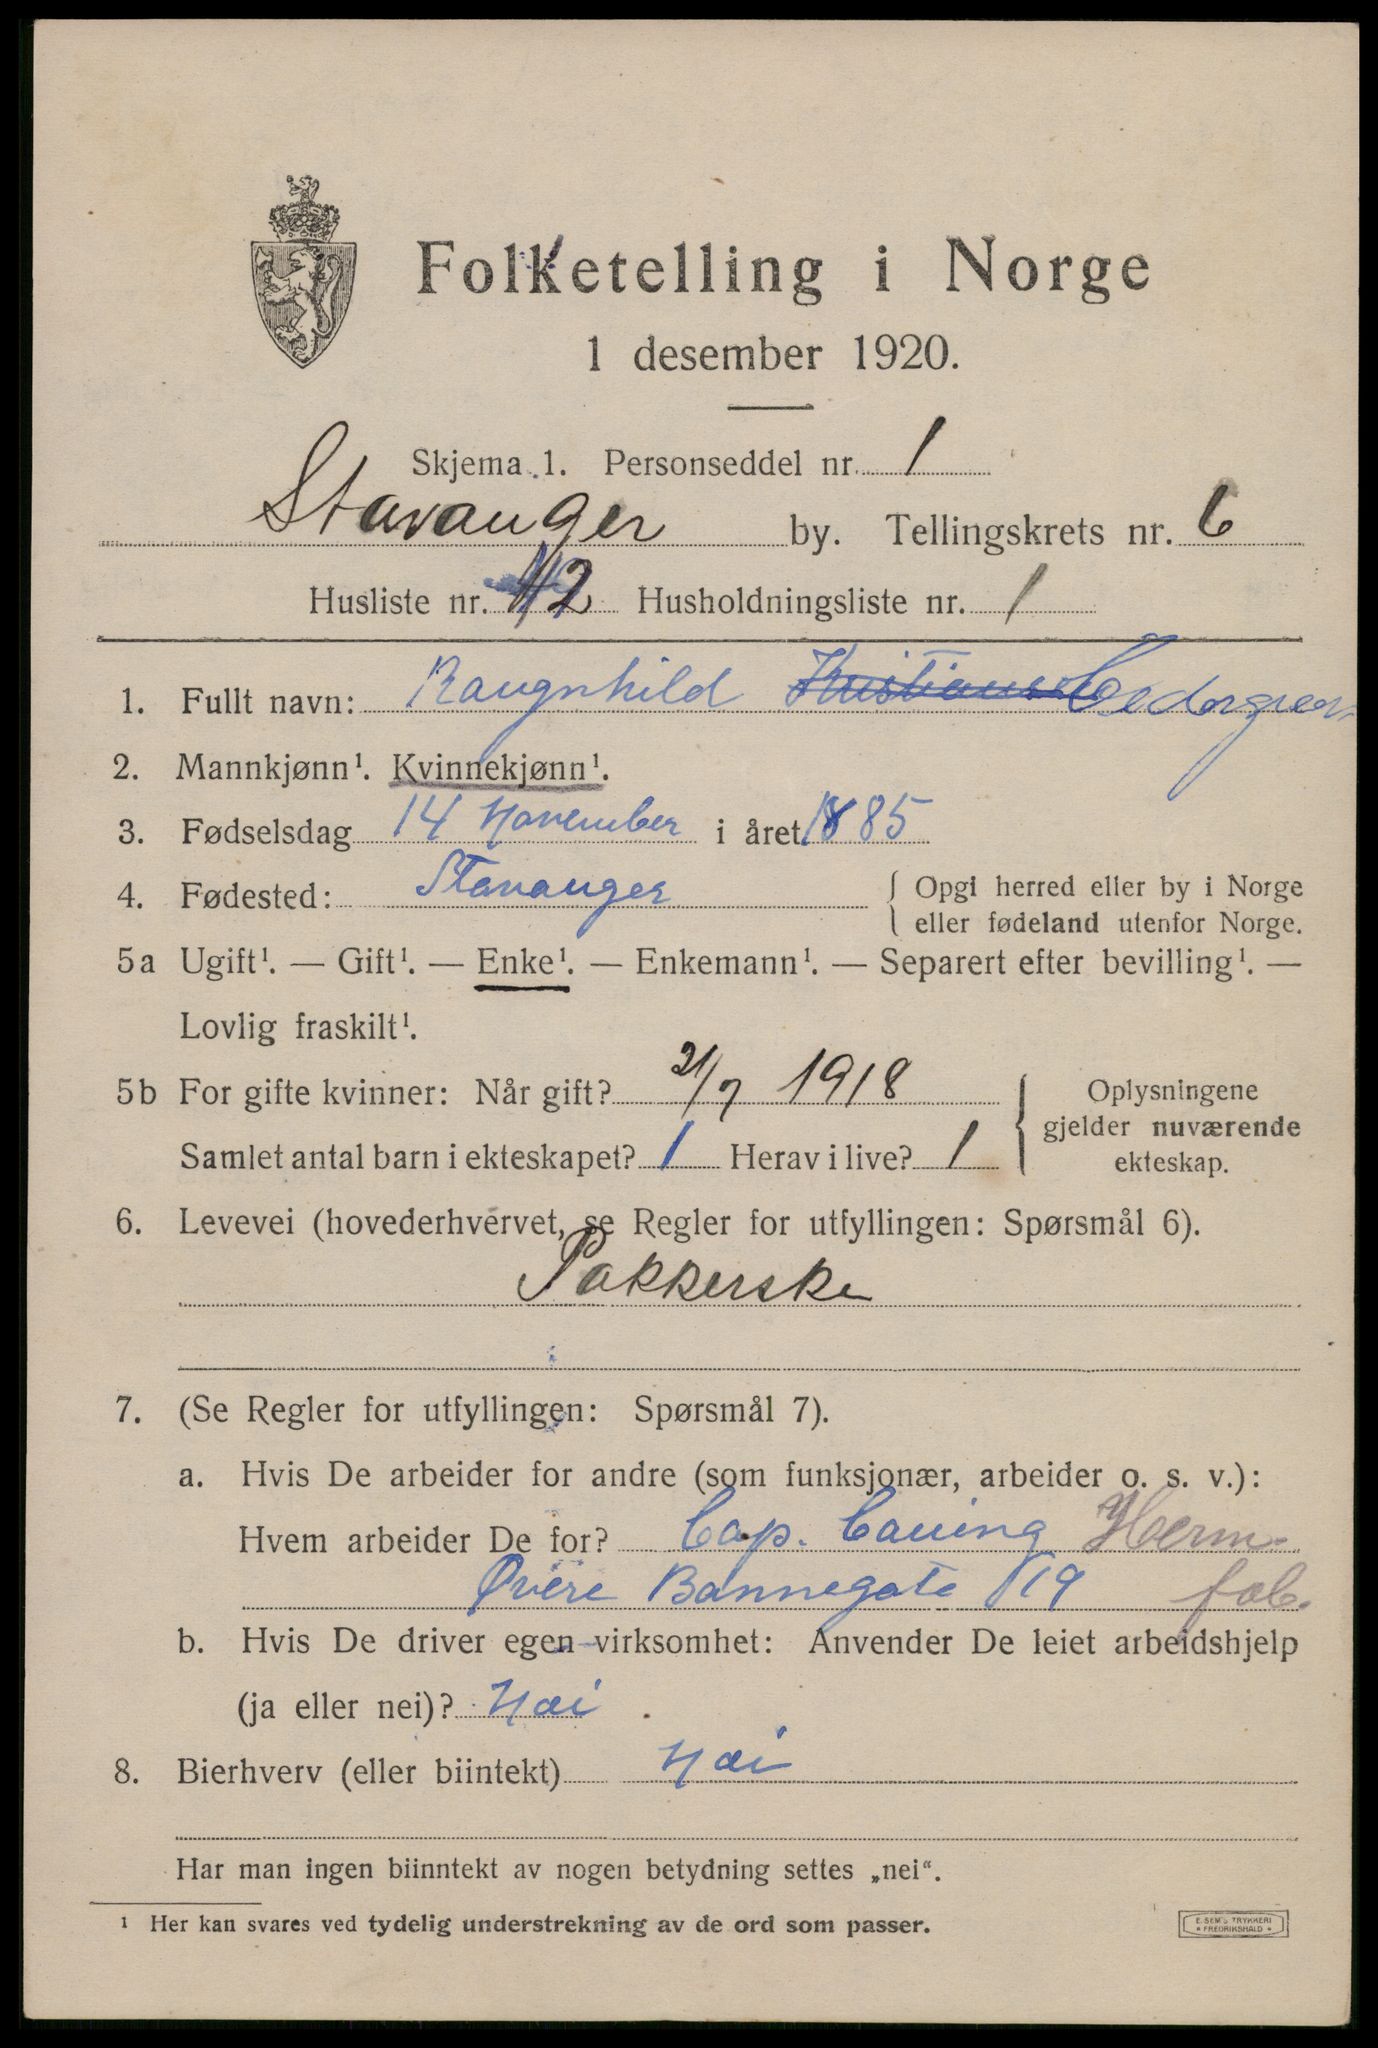 Folketelling i Norge
1 desember 1920.
Skjema 1. Personseddel nr. 1
Stavanger by. Tellingskrets nr. 6
Husliste nr. 42 Husholdningsliste nr. 1
1. Fullt navn: Raugnhild Kristiansen Cedergren
2. Mannkjønn¹. Kvinnekjønn¹.
3. Fødselsdag 14 November i året 1885
4. Fødested: Stavanger { Opgi herred eller by i Norge
eller fødeland utenfor Norge.
5a Ugift¹. — Gift¹. — Enke¹. — Enkemann¹. — Separert efter bevilling¹. —
Lovlig fraskilt¹.
5b For gifte kvinner: Når gift? 21/7 1918
Samlet antal barn i ekteskapet? 1 Herav i live? 1
Oplysningene
gjelder nuværende
ekteskap.
6. Levevei (hovederhvervet, se Regler for utfyllingen: Spørsmål 6).
Pakkerske
7. (Se Regler for utfyllingen: Spørsmål 7).
a. Hvis De arbeider for andre (som funksjonær, arbeider o. s. v.):
Hvem arbeider De for? Cap. Caning Herm.
Øvere Bannegate 19 fab.
b. Hvis De driver egen virksomhet: Anvender De leiet arbeidshjelp
(ja eller nei)? Nai
8. Bierhverv (eller biintekt) Nai
Har man ingen biinntekt av nogen betydning settes „nei“.
¹ Her kan svares ved tydelig understrekning av de ord som passer.
E. SEM'S TRYKKERI
* FREDRIKSHALD *